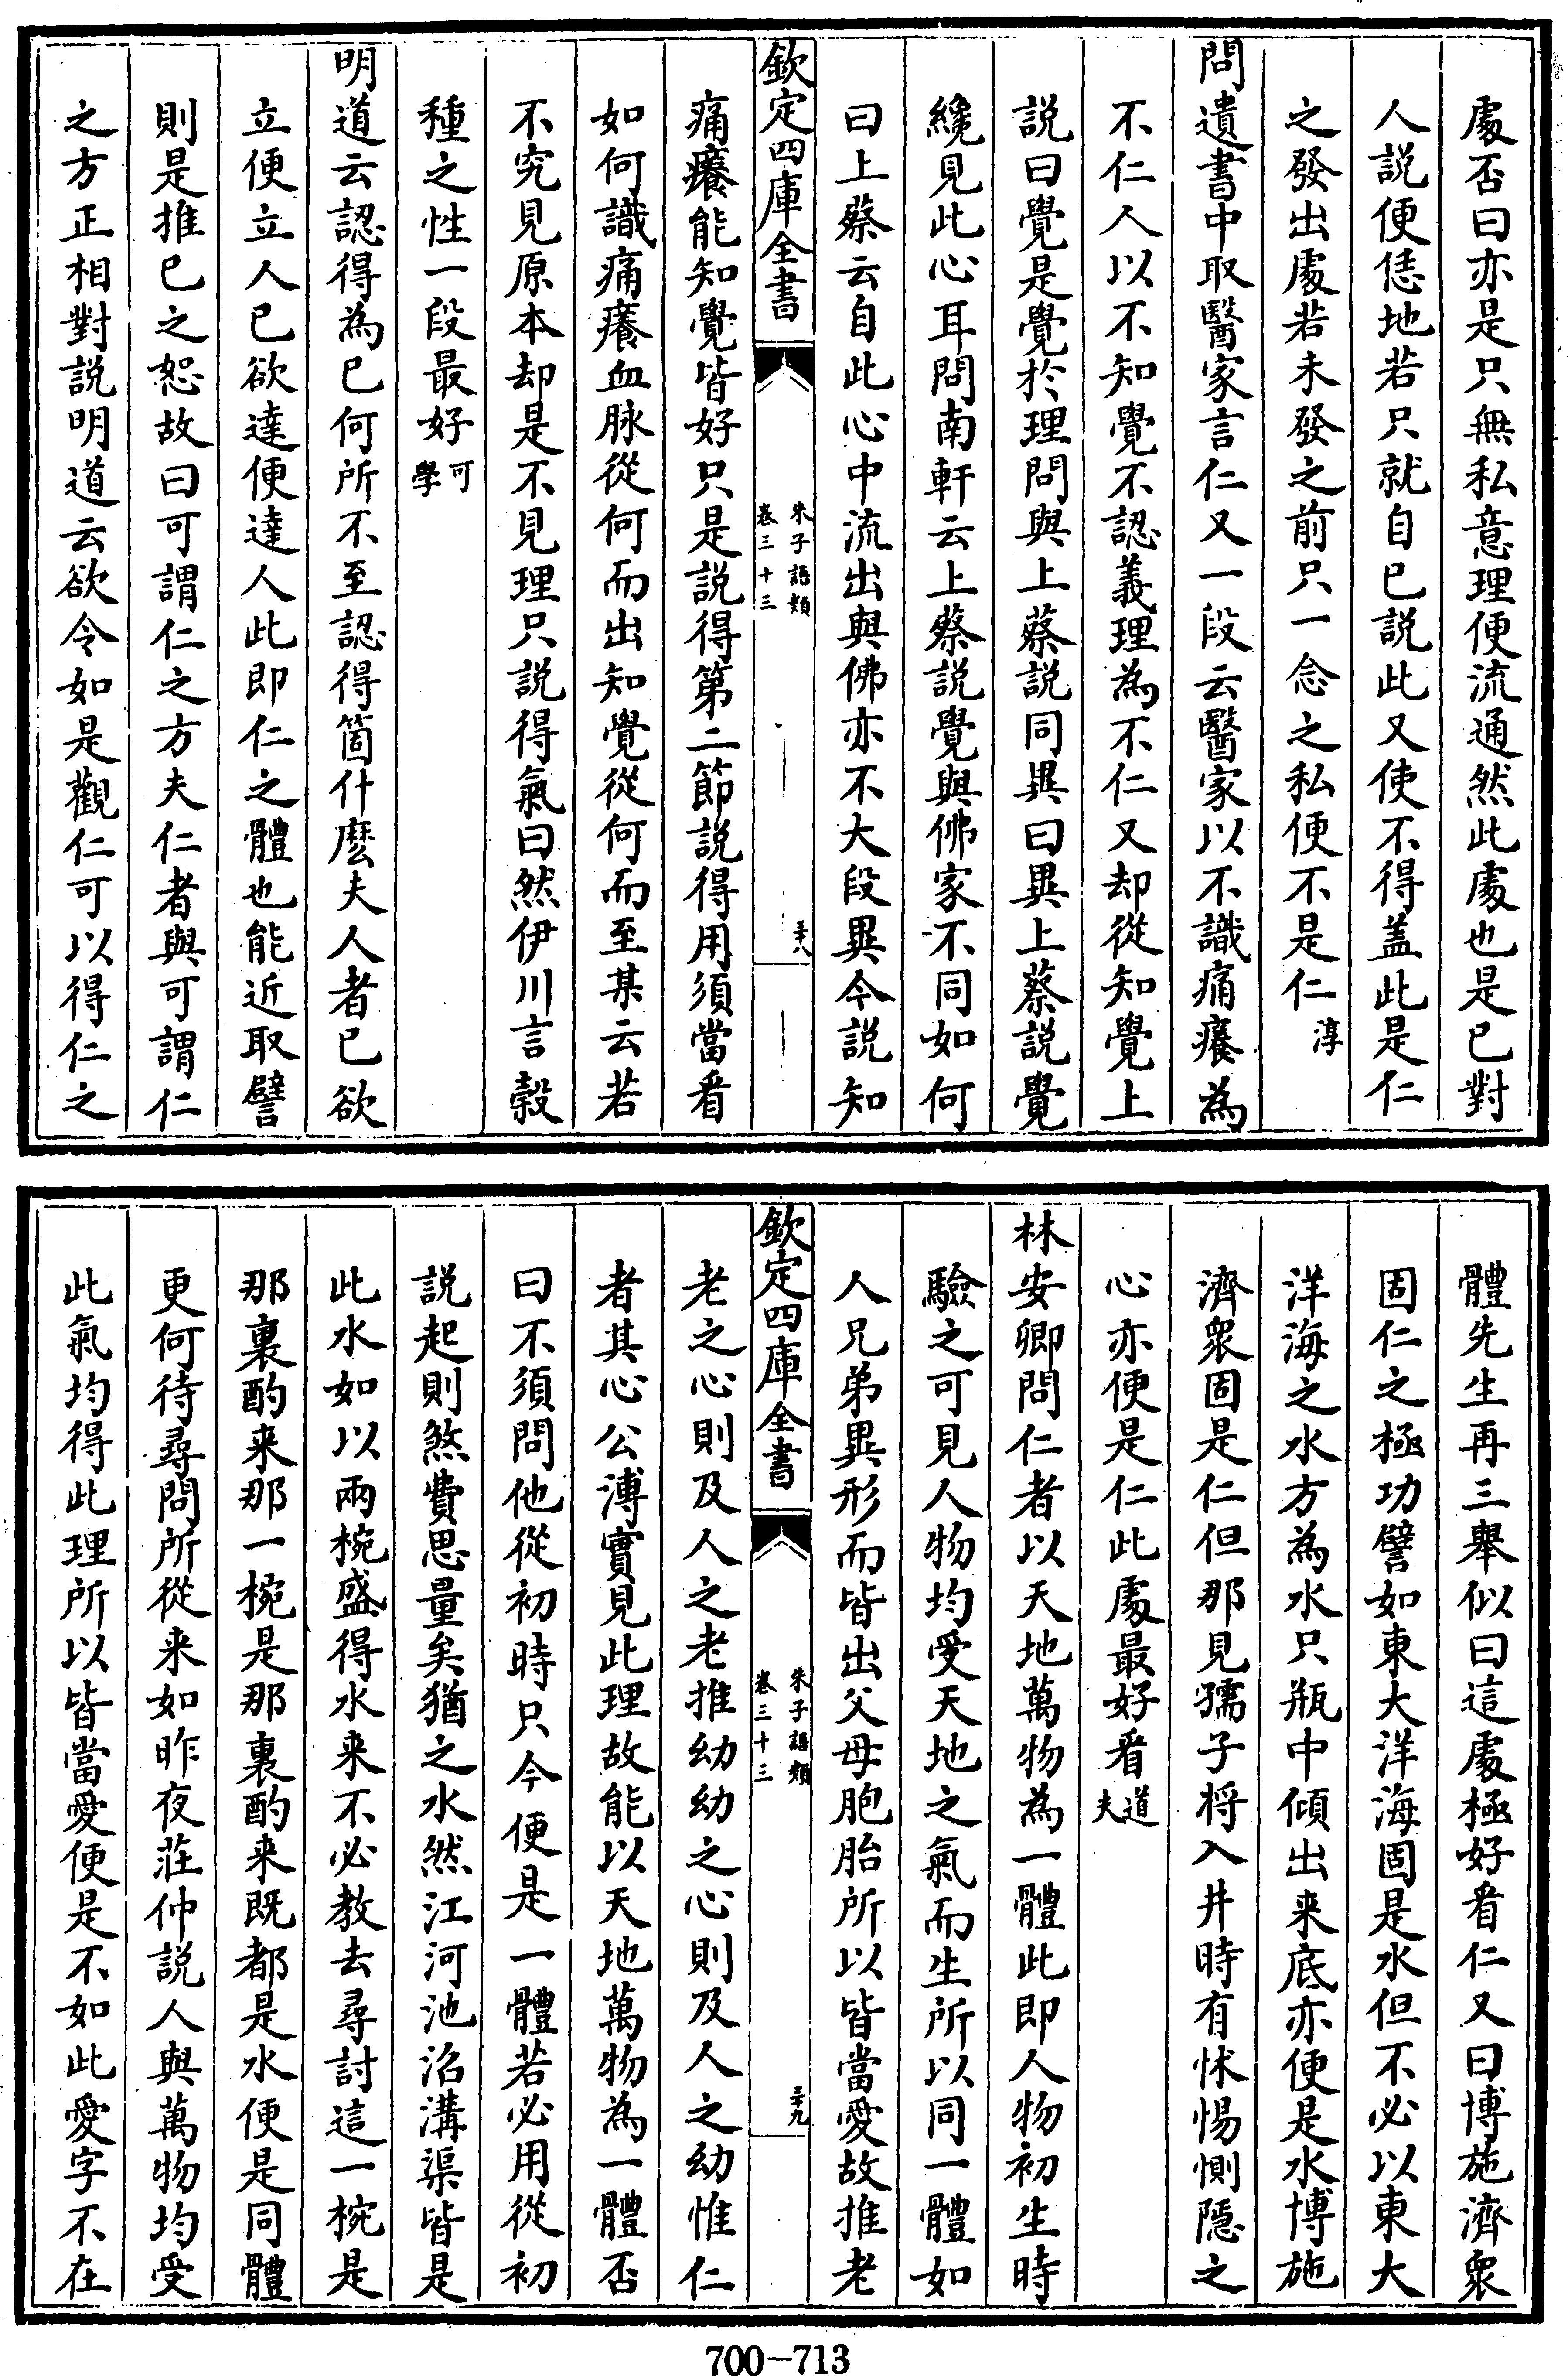 處否曰亦是只無私意理便流通然此處也是已對
人説便恁地若只就自已説此又使不得盖此是仁
之發出處若未發之前只一念之私便不是仁淳
問遺書中取醫家言仁又一段云醫家以不識痛癢為
不仁人以不知覺不認義理為不仁又却從知覺上
説曰覺是覺於理問與上蔡説同異曰異上蔡説覺
纔見此心耳問南軒云上蔡説覺與佛家不同如何
曰上蔡云自此心中流出與佛亦不大段異今説知
欽定四庫全書
朱子語類
卷三十三
三十八
痛癢能知覺皆好只是説得第二節説得用須當看
如何識痛癢血脉從何而出知覺從何而至某云若
不究見原本却是不見理只説得氣曰然伊川言榖
種之性一段最好可學
明道云認得為已何所不至認得箇什麼夫人者已欲
立便立人已欲達便達人此即仁之體也能近取譬
則是推已之恕故曰可謂仁之方夫仁者與可謂仁
之方正相對説明道云欲令如是觀仁可以得仁之
體先生再三舉似曰這處極好看仁又曰博施濟衆
固仁之極功譬如東大洋海固是水但不必以東大
洋海之水方為水只瓶中傾出来底亦便是水博施
濟衆固是仁但那見孺子将入井時有怵惕惻隱之
心亦便是仁此處最好看道夫
林安卿問仁者以天地萬物為一體此即人物初生時
驗之可見人物均受天地之氣而生所以同一體如
人兄弟異形而皆出父母胞胎所以皆當愛故推老
欽定四庫全書
朱子語類
卷三十三
三十九
老之心則及人之老推幼幼之心則及人之幼惟仁
者其心公溥實見此理故能以天地萬物為一體否
曰不須問他從初時只今便是一體若必用從初
説起則煞費思量矣猶之水然江河池沼溝渠皆是
此水如以兩椀盛得水来不必教去尋討這一椀是
那裏酌来那一椀是那裏酌来既都是水便是同體
更何待尋問所從来如昨夜莊仲説人與萬物均受
此氣均得此理所以皆當愛便是不如此愛字不在
700-713